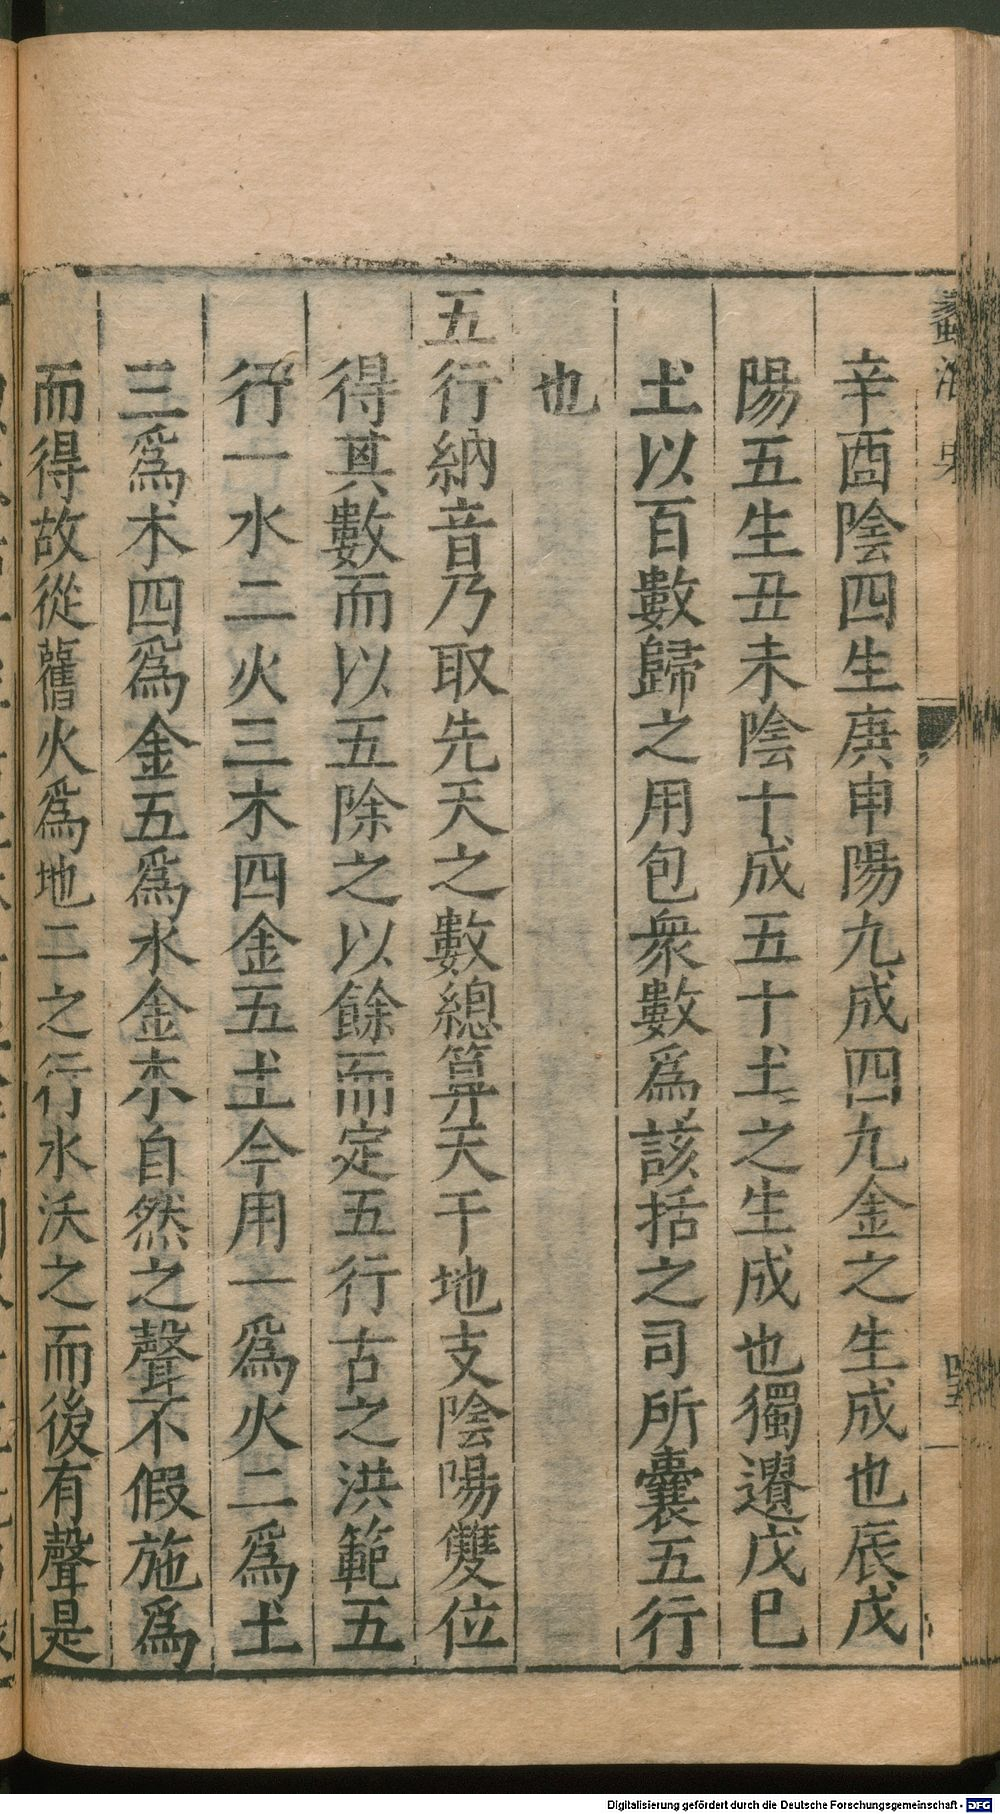 辛酉陰四生庚申陽九成四九金之生成也辰戊
陽五生丑未陰十成五十土之生成也獨遷戊巳
土以百數歸之用包衆數爲該括之司所囊五行
也
五行納音乃取先天之數總筭天干地支陰陽雙位
得其數而以五除之以餘而定五行古之洪範五
行一水二火三木四金五土今用一爲火二爲土
三爲木四爲金五爲水金木自然之聲不假施爲
而得故從舊火爲地二之行水沃之而後有聲是
蠡海
Digitalisierung gefördert durch die Deutsche Forschungsgemeinschaft - DFG